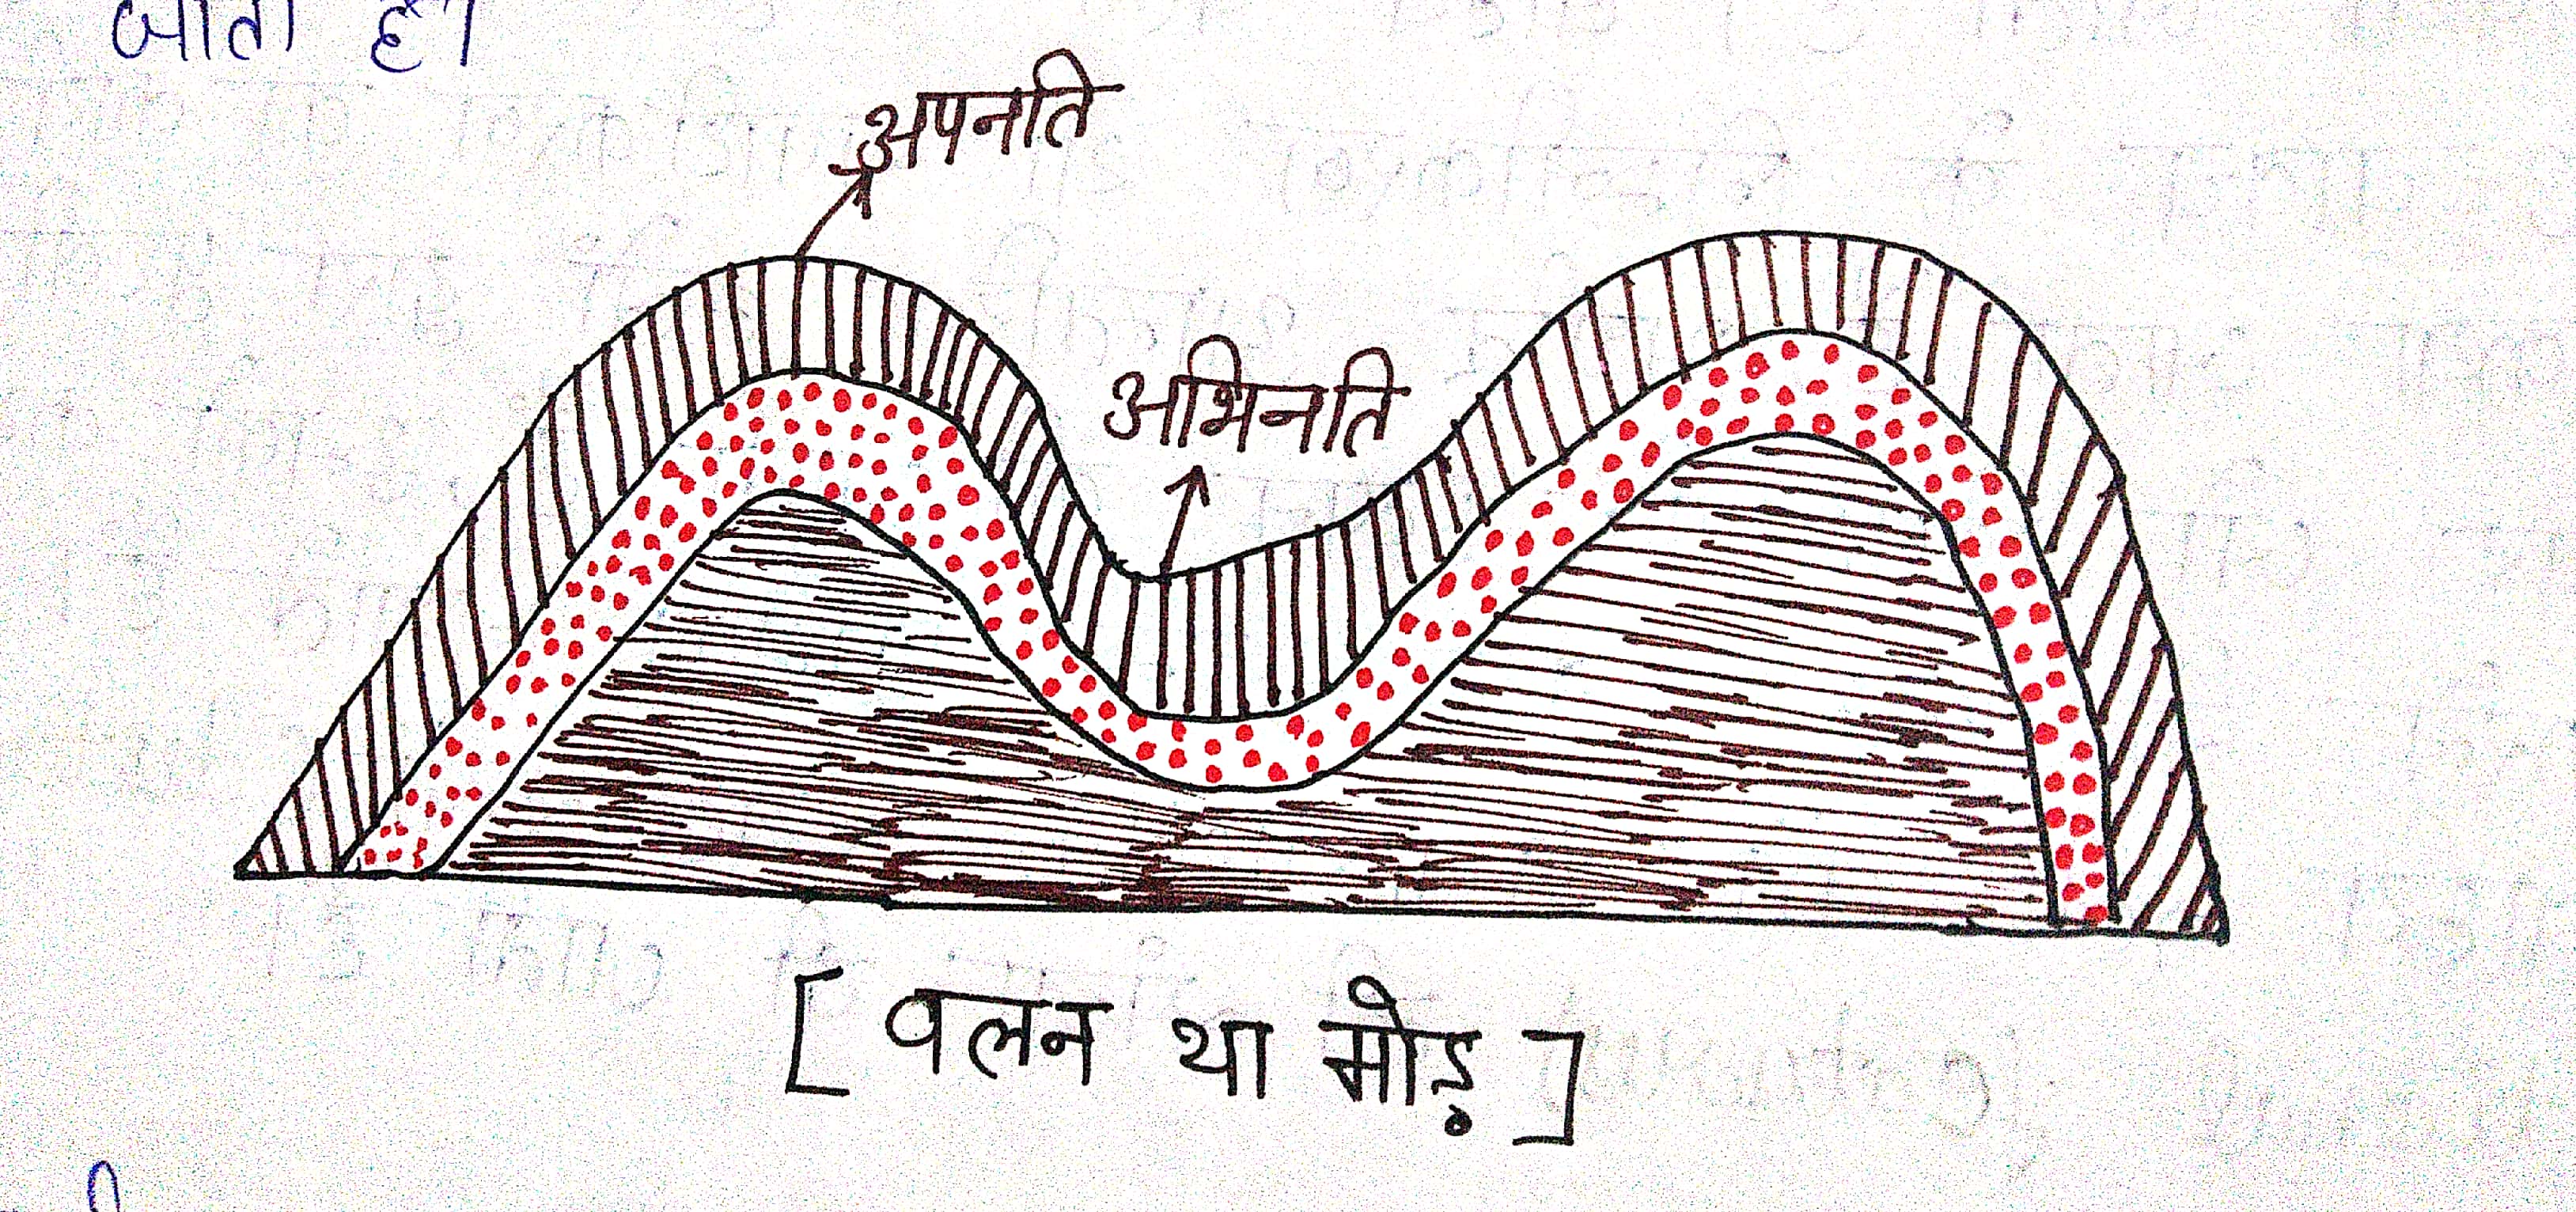 जाता है।
अपनति
अभिनति
[ वलन या मोड़ ]